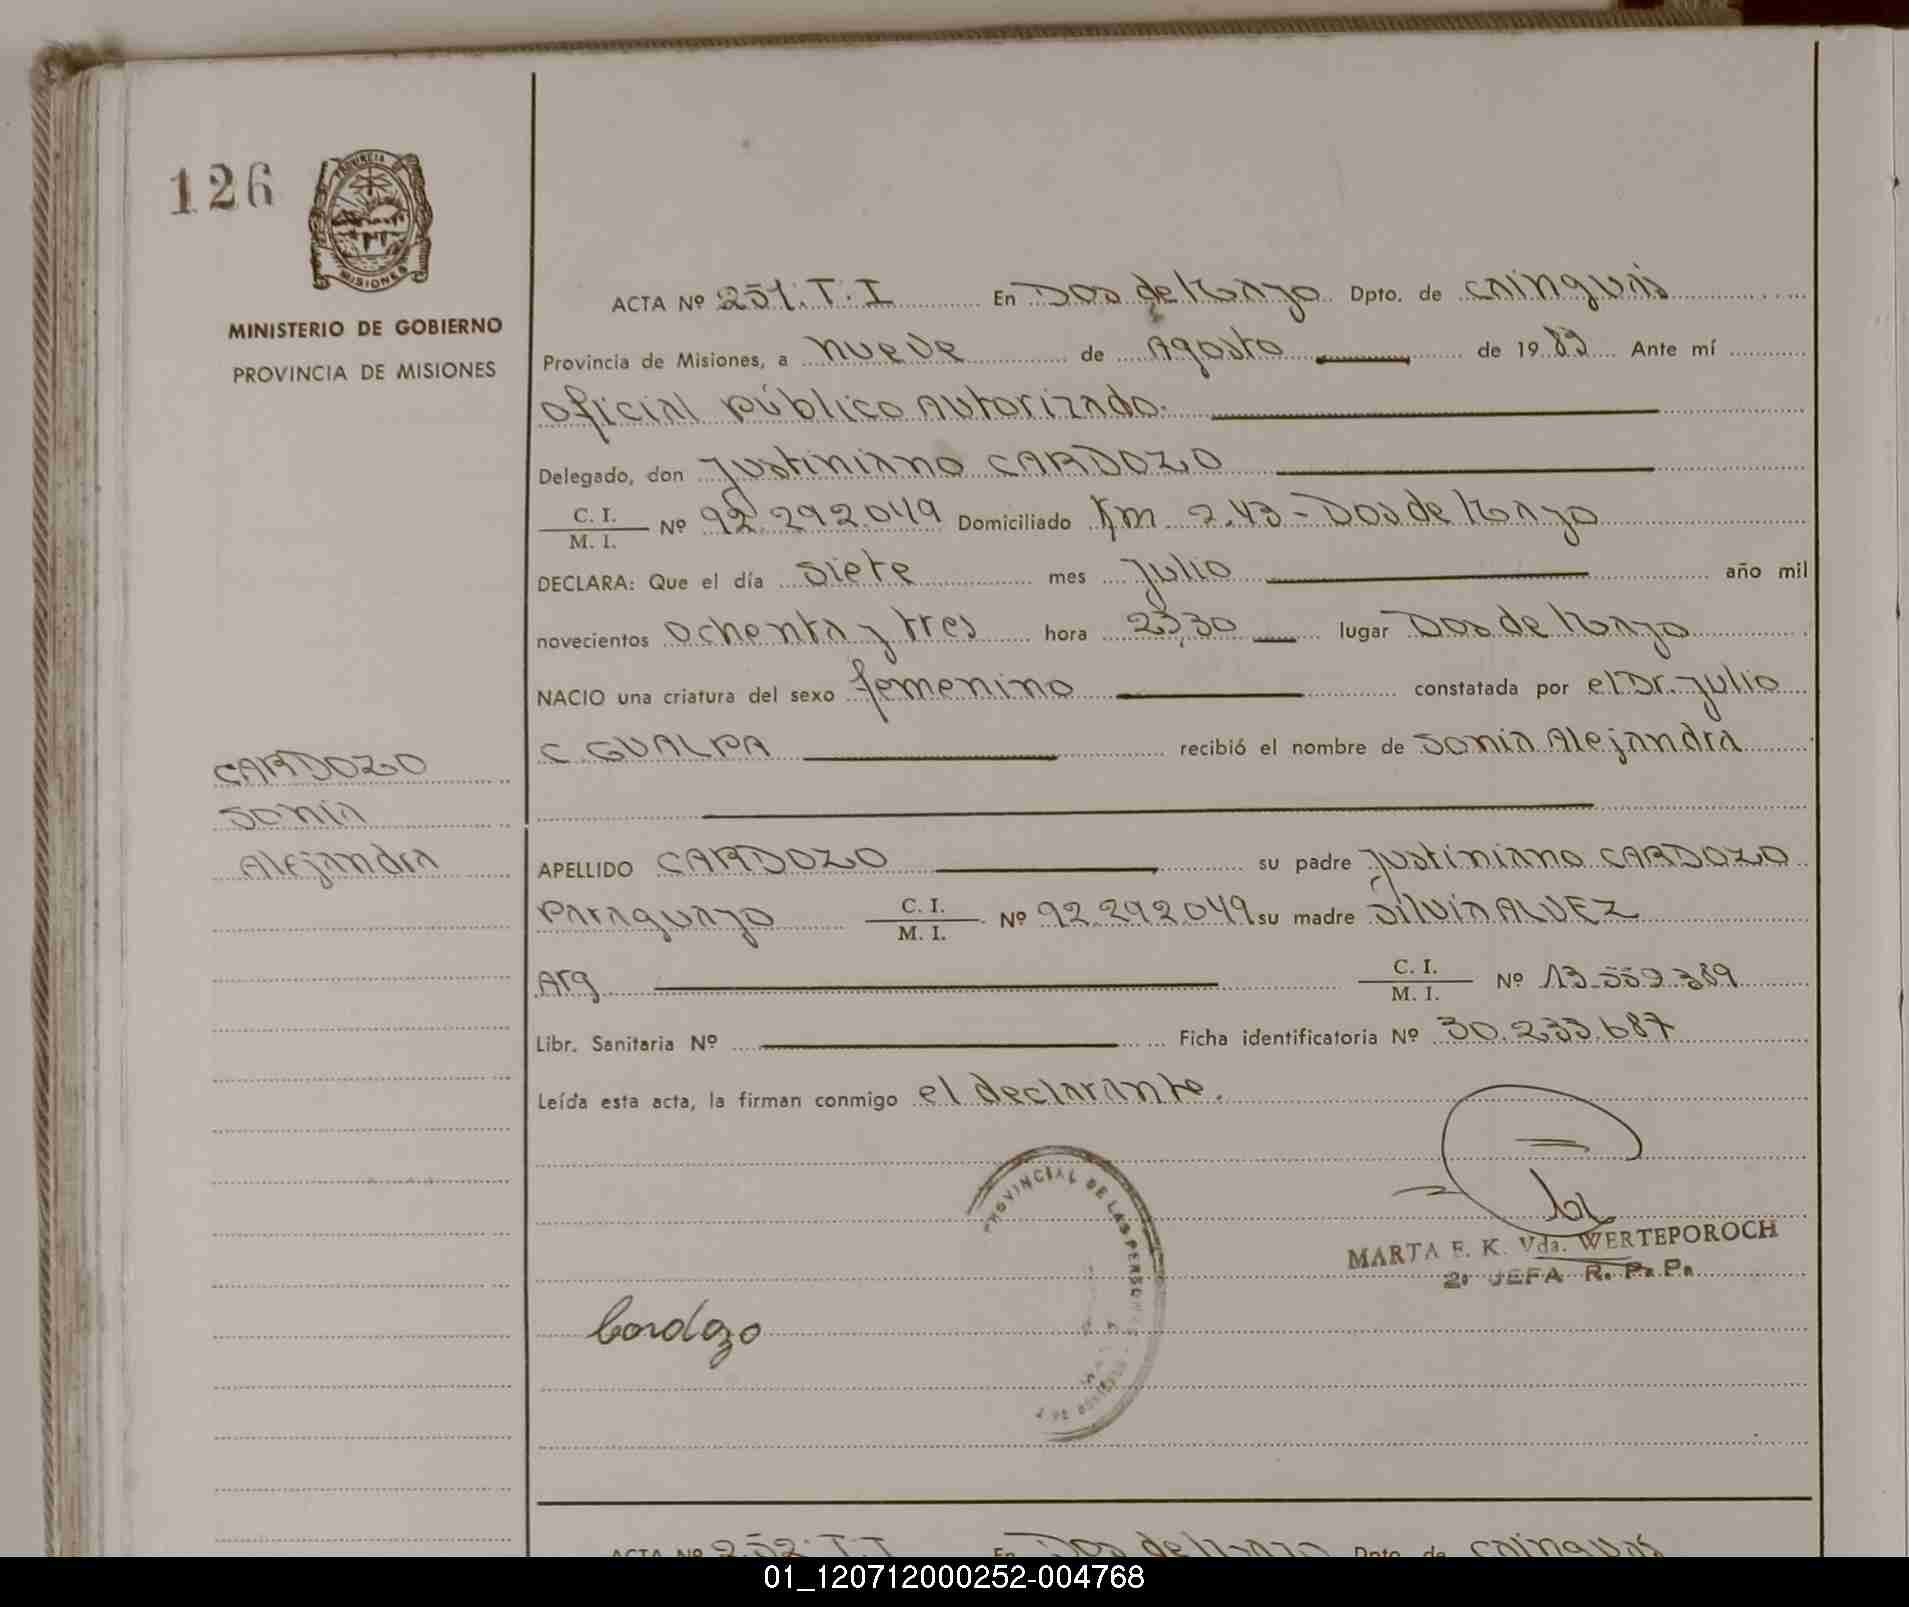 126
PROVINCIA
MISIONES
MINISTERIO DE GOBIERNO
PROVINCIA DE MISIONES
ACTA Nº 251. T. I En Dos de Mayo Dpto. de Cainguás
Provincia de Misiones, a nueve de Agosto de 1983 Ante mí
oficial público Autorizado.
Delegado, don Justiniano CARDOZO
C. I.
M. I. Nº 92.292.049 Domiciliado Km 243 - Dos de Mayo
DECLARA: Que el día siete mes Julio año mil
novecientos ochenta y tres hora 23,30 lugar Dos de Mayo
NACIO una criatura del sexo femenino constatada por el Dr. Julio
C. GUALPA recibió el nombre de Sonia Alejandra
CARDOZO
Sonia
Alejandra
APELLIDO CARDOZO su padre Justiniano CARDOZO
Paraguayo C. I.
M. I. Nº 92.292.049 su madre Silvia ALVEZ
Arg C. I.
M. I. Nº 13.559.389
Libr. Sanitaria Nº Ficha identificatoria Nº 30.233.687
Leída esta acta, la firman conmigo el declarante.
PROVINCIAL DE LAS PERSONAS
MARTA E. K. Vda. WERTEPOROCH
2º JEFA R. P. P.
Cardozo
ACTA Nº 252. T. I En Dos de Mayo Dpto. de Cainguás
01_120712000252-004768